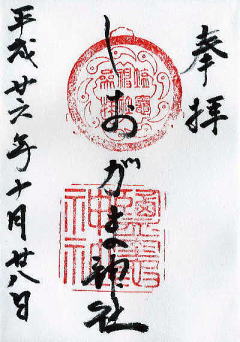 奉拝
しおがま神社
平成廿六年十月廿八日